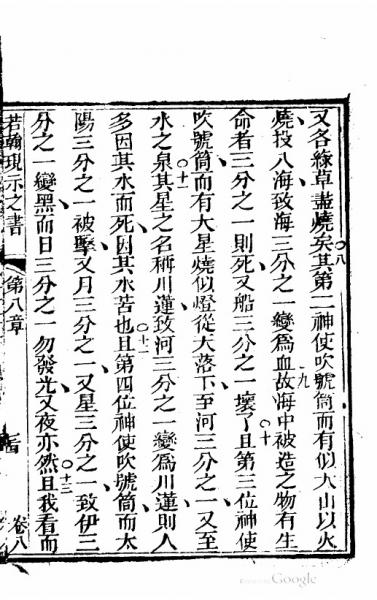 又各綠草盡燒矣○八其第二神使吹號筒而有似大山以火
燒投入海致海三分之一變爲血○九故海中被造之物有生
命者三分之一則死又船三分之一壞了○十且第三位神使
吹號筒而有大星燒似燈從天落下至河三分之一又至
水之泉○十一其星之名稱川蓮致河三分之一變爲川蓮則人
多因其水而死因其水苦也○十二且第四位神使吹號筒而太
陽三分之一被擊又月三分之一又星三分之一致伊三
分之一變黑而日三分之一勿發光又夜亦然○十三且我看而
若翰現示之書
第八章
卷八
Google